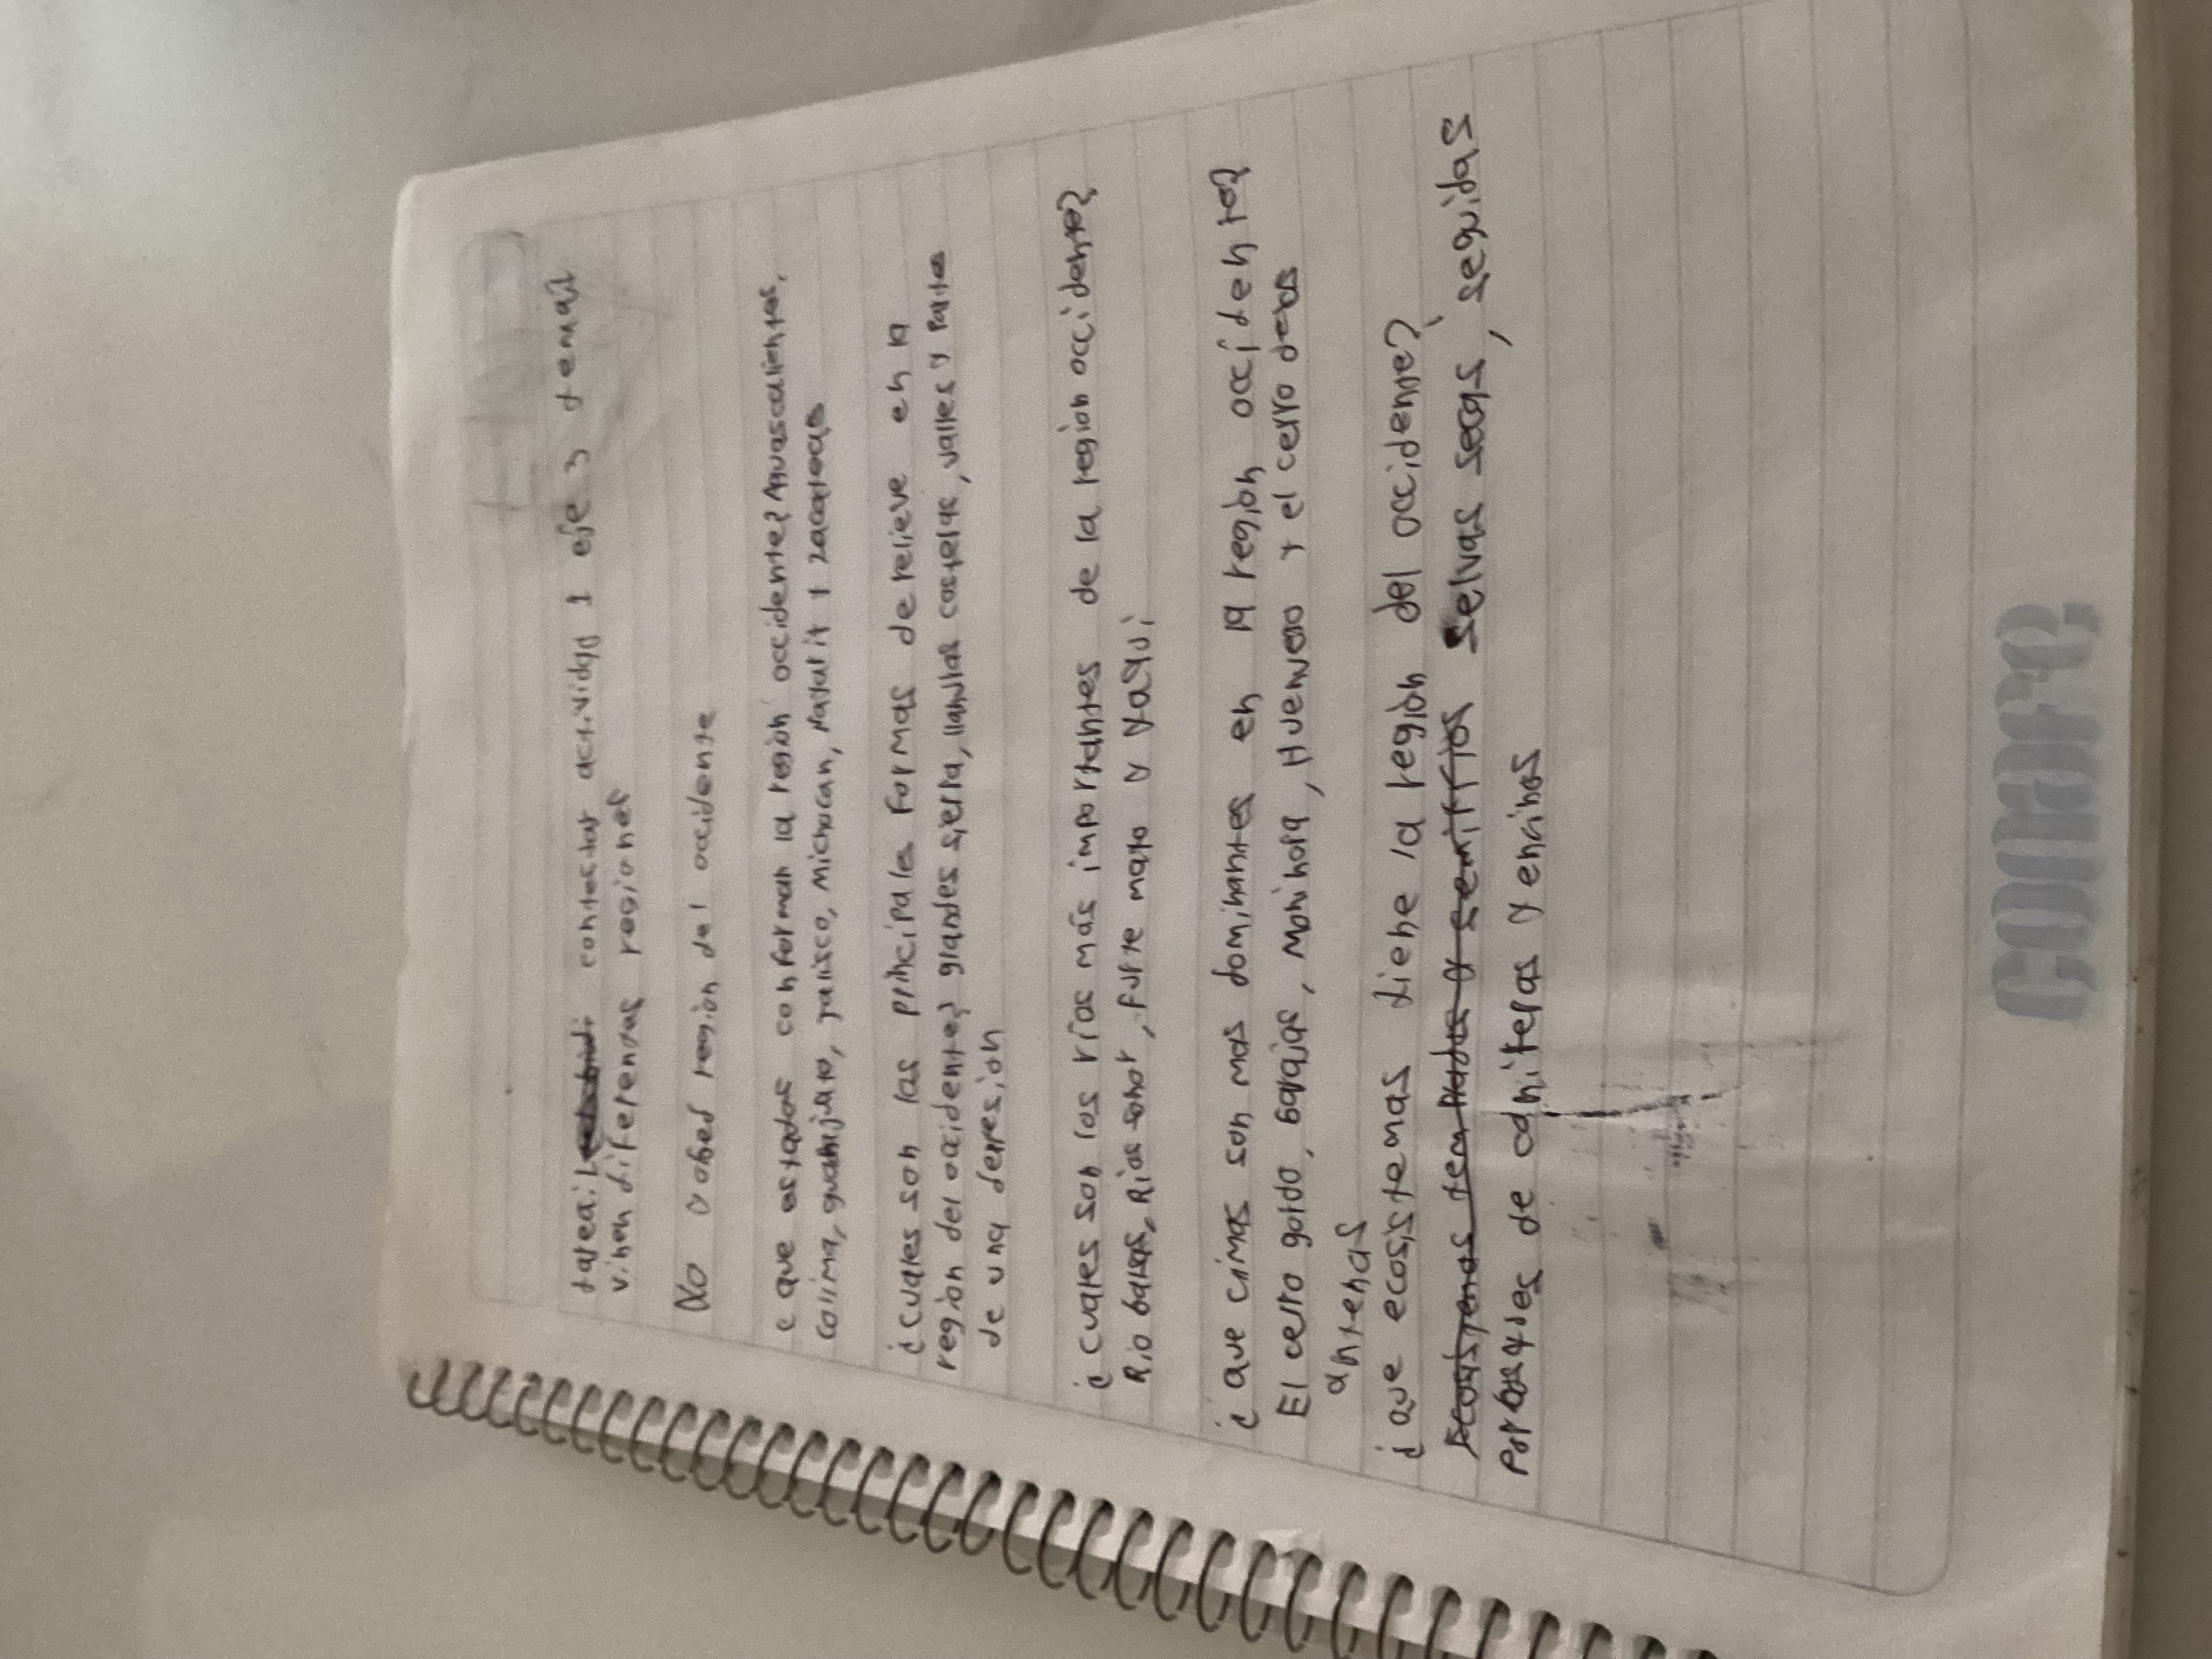 contestar actividad 1 eje 3
vinen diferenes regiones
No v obser region del occidente
que estados conforman la región occidente? Aguascalientes,
colima, guanjuato, jalisco, michoacan, Nallarit y zacatecas
¿cuales son las principales formas de relieve en la
región del occidente? grandes sierra, llanuras costeras, valles y partes
de una depresion
¿cuales son los ríos más importantes de la region occidente?
Rio balsas, Rios sonor, fuerte mayo y Yaqui
¿que cimas son mas dominantes en la región occidente?
El cerro gordo, barajas, Mohinora, Huenueno y el cerro de las
antenas
¿que ecosistemas tiene la región del occidente?
Ecosistemas templados y semifríos Selvas secas, seguidas
por bosques de coniferas y encinos
comare